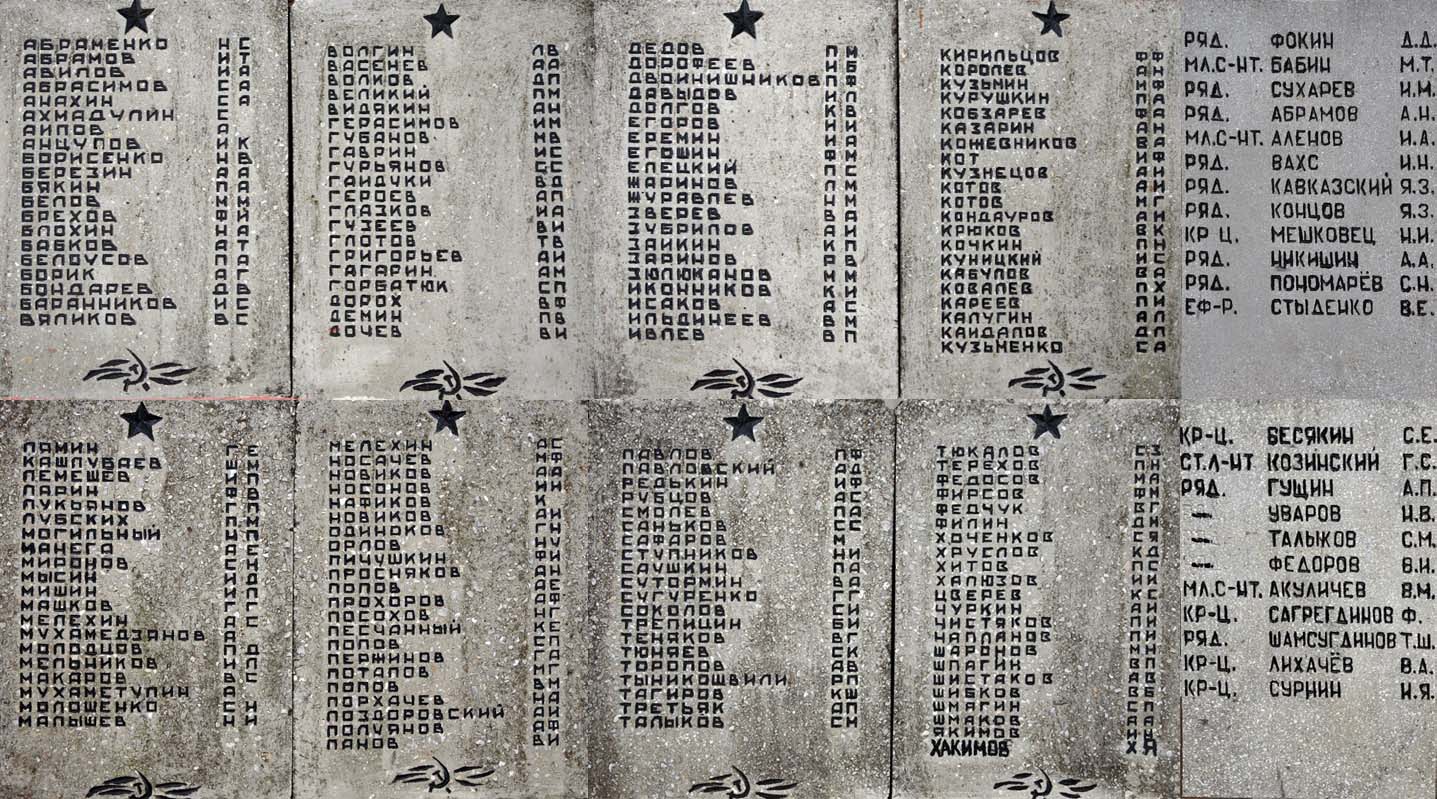 АБРАМЕНКО Н С
АБРАМОВ И Т
АВИЛОВ И А
АБРАСИМОВ С А
АНАХИН С А
АХМАДУЛИН С
АИПОВ А
АНЦУПОВ И К
БОРИСЕНКО Н В
БЕРЕЗИН А А
БЯКИН П Н
БЕЛОВ И М
БРЕХОВ Ф И
БЛОХИН Н И
БАБКОВ А Т
БЕЛОУСОВ П А
БОРИК А Г
БОНДАРЕВ Д В
БАРАННИКОВ И С
ВЯЛИКОВ В С
ВОЛГИН Л В
ВАСЕНЕВ А А
ВОЛКОВ Д П
ВЕЛИКИЙ П И
ВИДЯКИН А М
ГЕРАСИМОВ И М
ГУБАНОВ М В
ГАВРИН И С
ГУРЬЯНОВ С С
ГАЙДУКИ В Д
ГЕРОЕВ А П
ГЛАЗКОВ И А
ГУЗЕЕВ В И
ГЛОТОВ Т В
ГРИГОРЬЕВ Д И
ГАГАРИН А М
ГОРБАТЮК С П
ДОРОХ В Ф
ДЕМИН В П
ДОЧЕВ В И
ДЕДОВ П М
ДОРОФЕЕВ Н Б
ДВОЙНИШНИКОВ П Ф
ДАВЫДОВ И Л
ДОЛГОВ К В
ЕГОРОВ И И
ЕРЕМИН И А
ЕГОШИН Ф М
ЕЛЕЦКИЙ П С
ЖАРИНОВ Л М
ЖУРАВЛЕВ И М
ЗВЕРЕВ В А
ЗУБРИЛОВ А И
ЗАИКИН К П
ЗАРИНОВ Р В
ЗЮЛЮКАНОВ М М
ИКОННИКОВ К И
ИСАКОВ А С
ИЛЬДИНЕЕВ В М
ИВЛЕВ В П
КИРИЛЬЦОВ Ф Ф
КОРОЛЕВ А Н
КУЗЬМИН И Ф
КУРУШКИН П А
КОБЗАРЕВ Ф А
КАЗАРИН А Н
КОЖЕВНИКОВ В А
КОТ И Ф
КУЗНЕЦОВ А Н
КОТОВ А И
КОТОВ М Г
КОНДАУРОВ А И
КРЮКОВ В К
КОЧКИН П Н
КУНИЦКИЙ И С
КАБУЛОВ В А
КОВАЛЕВ П Х
КАРЕЕВ П И
КАЛУГИН А Л
КАЙДАЛОВ Д П
КУЗЬМЕНКО С А
РЯД. ФОКИН Д.Д.
МЛ.С-НТ. БАБИН М.Т.
РЯД. СУХАРЕВ И.М.
РЯД. АБРАМОВ А.Н.
МЛ.С-НТ. АЛЕНОВ И.А.
РЯД. ВАХС И.Н.
РЯД. КАВКАЗСКИЙ Я.З.
РЯД. КОНЦОВ Я.З.
КР Ц. МЕШКОВЕЦ Н.И.
РЯД. НИКИШИН А.А.
РЯД. ПОНОМАРЁВ С.Н.
ЕФ-Р. СТЫДЕНКО В.Е.
ЛАМИН Г Е
КАШЛУБАЕВ
ЛЕМЕШЕВ
ЛАРИН
ЛУКЬЯНОВ
ЛУБСКИХ
МОГИЛЬНЫЙ
МАНЕГА
МИРОНОВ
МЫСИН
МИШИН
МАШКОВ
МЕЛЕХИН
МУХАМЕДЗЯНОВ
МОЛОДЦОВ
МЕЛЬНИКОВ
МАКАРОВ
МУХАМЕТУЛИН А
МОЛОШЕНКО С Н
МАЛЫШЕВ Н И
МЕЛЕХИН А С
НОСАЧЕВ
НОВИКОВ
НОСОНОВ
НАФИКОВ
НОВИКОВ
ОДИНОКОВ
ОРЛОВ
ПИЧУШКИН
ПРОСНЯКОВ
ПОПОВ
ПРОХОРОВ
ПОСОХОВ
ПЕСЧАННЫЙ
ПОПОВ
ПЕРЖИНОВ
ПОТАПОВ
ПОПОВ В М
ПОРХАЧЕВ
ПОЗДОРОВСКИЙ А И
ПОЛУЯНОВ А Ф
ПАНОВ В И
ПАВЛОВ П Ф
ПАВЛОВСКИЙ А Д
РЕДЬКИН И Ф
РУБЦОВ А С
СМОЛЕВ
САНЬКОВ
САФАРОВ
СТУПНИКОВ
САУШКИН
СУТОРМИН
СУГУРЕНКО
СОКОЛОВ
ТРЕЛИЦИН
ТЕНЯКОВ В Г
ТЮНЯЕВ С К
ТОРОПОВ А В
ТЫНИКОШВИЛИ
ТАГИРОВ К Ш
ТРЕТЬЯК
ТАЛЫКОВ С Н
ТЮКАЛОВ С З
ТЕРЕХОВ П Н
ФЕДОСОВ М А
ФИРСОВ
ФЕДЧУК В Г
ФИЛИН
ХОЧЕНКОВ С Я
ХРУСЛОВ К Д
ХИТОВ П С
ХАЛЮЗОВ И И
ЦВЕРЕВ К С
ЧУРКИН А И
ЧИСТЯКОВ П И
ЧАПЛАНОВ М И
ШАРОНОВ
ШПАГИН В П
ШИСТАКОВ А В
ШИБКОВ В Б
ШМАКОВ С П
ШМАКОВ
ЯКИМОВ
ХАКИМОВ Х Я
КР-Ц. БЕСЯКИН С.Е.
СТ.Л-НТ КОЗИНСКИЙ Г.С.
РЯД. ГУЩИН А.П.
— УВАРОВ И.В.
— ТАЛЫКОВ С.М.
— ФЕДОРОВ В.И.
МЛ.С-НТ. АКУЛИЧЕВ В.М.
КР-Ц. САГРЕГДИНОВ Ф.
РЯД. ШАМСУГДИНОВ Т.Ш.
КР-Ц. ЛИХАЧЁВ В.А.
КР-Ц. СУРНИН И.Я.